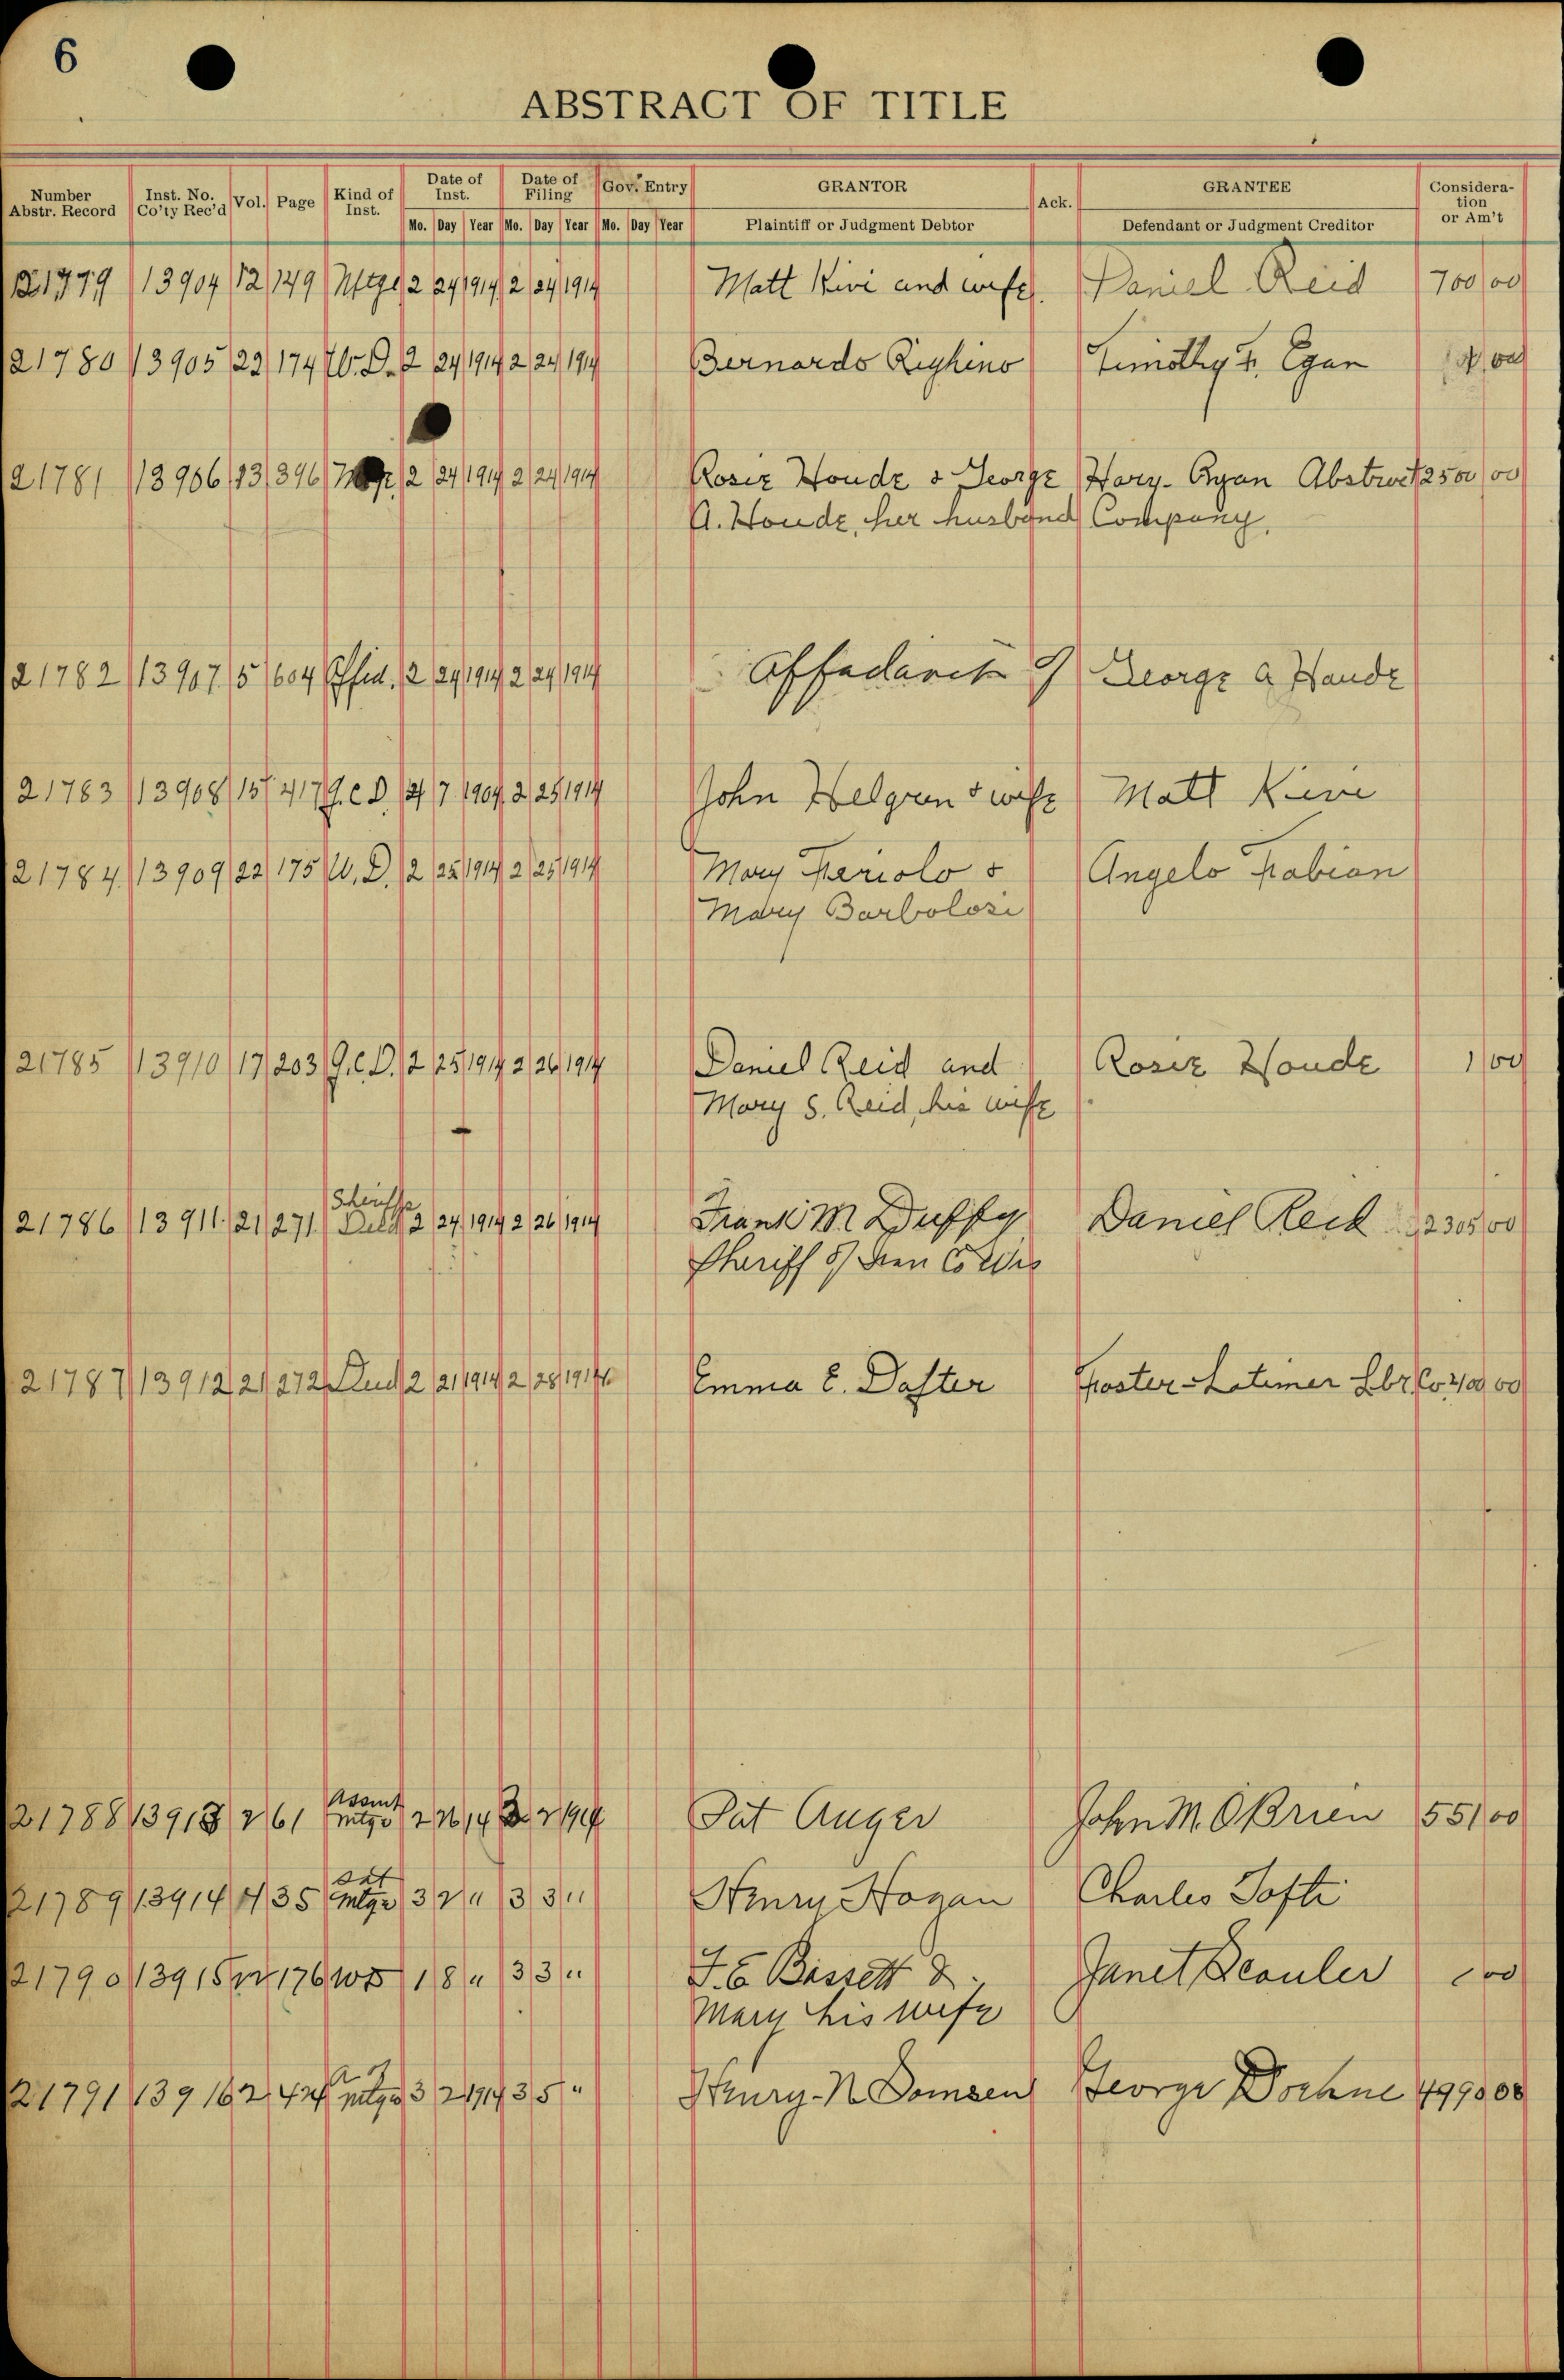 6
ABSTRACT OF TITLE
Number Abstr. Record Inst. No. Co'ty Rec'd Vol. Page Kind of Inst. Date of Inst. Date of Filing Gov. Entry GRANTOR Ack. GRANTEE Consideration or Am't
Mo. Day Year Mo. Day Year Mo. Day Year Plaintiff or Judgment Debtor Defendant or Judgment Creditor
21779 13904 12 149 Mtge 2 24 1914 2 24 1914 Matt Kivi and wife. Daniel Reid 700 00
21780 13905 22 174 W.D. 2 24 1914 2 24 1914 Bernardo Righino Timothy F. Egan
21781 13906 13 396 2 24 1914 2 24 1914 Rosie Houde & George Hary-Ryan Abstract 2500 00
A. Houde, her husband Company.
21782 13907 5 604 Affid. 2 24 1914 2 24 1914 Affadavit of George A Houde
21783 13908 15 417 Q.C.D. 7 1909 2 25 1914 John Helgren & wife Matt Kivi
21784 13909 22 175 W.D. 2 25 1914 2 25 1914 Mary Feriolo & Angelo Fabian
Mary Barbolosi
21785 13910 17 203 Q.C.D. 2 25 1914 2 26 1914 Daniel Reid and Rosie Houde 1 00
Mary S. Reid, his wife
Sheriffs
21786 13911 21 271 Deed 2 24 1914 2 26 1914 Frank M Duffy Daniel Reid 2305 00
Sheriff of Iron Co Wis
21787 13912 21 272 Deed 2 21 1914 2 28 1914 Emma E. Daster Foster-Latimer Lbr Co 400 00
Assmt
21788 13913 2 61 mtge 2 26 14 3 2 1914 Pat Auger John M. OBrien 551 00
Sat
21789 13914 4 35 mtge 3 2 " 3 3 " Henry Hogan Charles Tofti
21790 13915 22 176 WD 1 8 " 3 3 " F. E. Bassett & Janet Scouler
Mary his wife
21791 13916 2 424 mtge 3 2 1914 3 5 " Henry-N Domsen George Doehne 4990 00